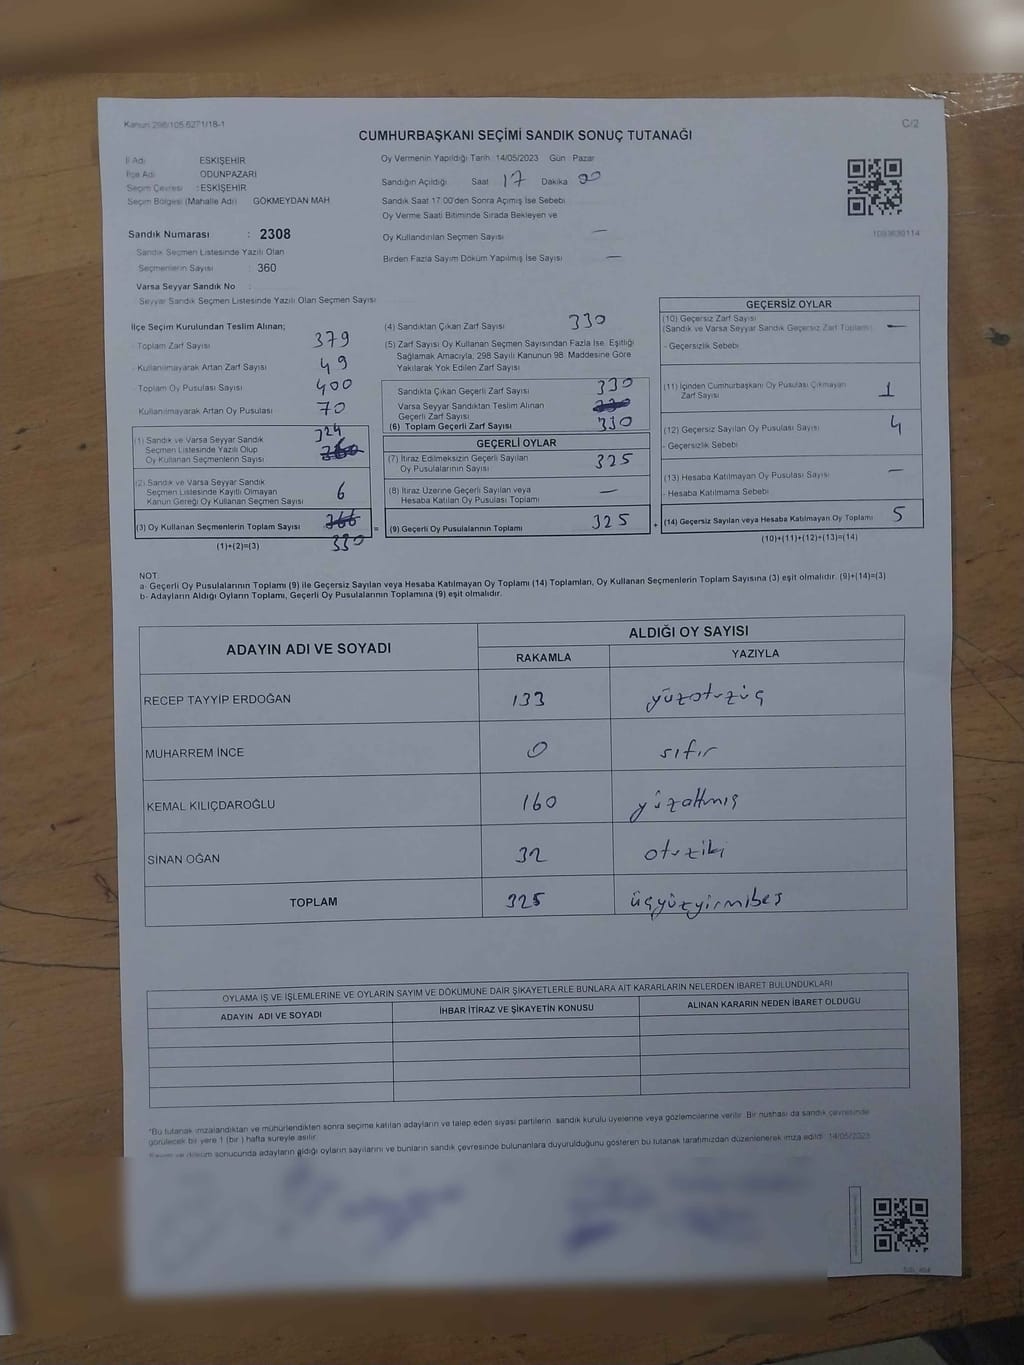 Kanun 298/105.6271/18-1
C/2
CUMHURBAŞKANI SEÇİMİ SANDIK SONUÇ TUTANAĞI
İl Adı ESKİŞEHİR
İlçe Adı ODUNPAZARI
Seçim Çevresi : ESKİŞEHİR
Seçim Bölgesi (Mahalle Adı) GÖKMEYDAN MAH.
Sandık Numarası : 2308
Sandık Seçmen Listesinde Yazılı Olan
Seçmenlerin Sayısı : 360
Varsa Seyyar Sandık No :
Seyyar Sandık Seçmen Listesinde Yazılı Olan Seçmen Sayısı
Oy Vermenin Yapıldığı Tarih 14/05/2023 Gün Pazar
Sandığın Açıldığı Saat 17 Dakika 00
Sandık Saat 17:00'den Sonra Açılmış İse Sebebi
Oy Verme Saati Bitiminde Sırada Bekleyen ve
Oy Kullandırılan Seçmen Sayısı —
Birden Fazla Sayım Döküm Yapılmış İse Sayısı —
İlçe Seçim Kurulundan Teslim Alınan;
- Toplam Zarf Sayısı 379
- Kullanılmayarak Artan Zarf Sayısı 49
- Toplam Oy Pusulası Sayısı 400
Kullanılmayarak Artan Oy Pusulası 70
(1) Sandık ve Varsa Seyyar Sandık 324
Seçmen Listesinde Yazılı Olup 360
Oy Kullanan Seçmenlerin Sayısı
(2) Sandık ve Varsa Seyyar Sandık
Seçmen Listesinde Kayıtlı Olmayan 6
Kanun Gereği Oy Kullanan Seçmen Sayısı
(3) Oy Kullanan Seçmenlerin Toplam Sayısı 366 =
(1)+(2)=(3) 330
(4) Sandıktan Çıkan Zarf Sayısı 330
(5) Zarf Sayısı Oy Kullanan Seçmen Sayısından Fazla İse, Eşitliği
Sağlamak Amacıyla, 298 Sayılı Kanunun 98. Maddesine Göre
Yakılarak Yok Edilen Zarf Sayısı
Sandıkta Çıkan Geçerli Zarf Sayısı 330
Varsa Seyyar Sandıktan Teslim Alınan
Geçerli Zarf Sayısı
(6) Toplam Geçerli Zarf Sayısı 330
GEÇERLİ OYLAR
(7) İtiraz Edilmeksizin Geçerli Sayılan 325
Oy Pusulalarının Sayısı
(8) İtiraz Üzerine Geçerli Sayılan veya —
Hesaba Katılan Oy Pusulası Toplamı
(9) Geçerli Oy Pusulalarının Toplamı 325 +
GEÇERSİZ OYLAR
(10) Geçersiz Zarf Sayısı —
(Sandık ve Varsa Seyyar Sandık Geçersiz Zarf Toplamı)
- Geçersizlik Sebebi
(11) İçinden Cumhurbaşkanı Oy Pusulası Çıkmayan 1
Zarf Sayısı
(12) Geçersiz Sayılan Oy Pusulası Sayısı 4
- Geçersizlik Sebebi
(13) Hesaba Katılmayan Oy Pusulası Sayısı —
- Hesaba Katılmama Sebebi
(14) Geçersiz Sayılan veya Hesaba Katılmayan Oy Toplamı 5
(10)+(11)+(12)+(13)=(14)
NOT:
a- Geçerli Oy Pusulalarının Toplamı (9) ile Geçersiz Sayılan veya Hesaba Katılmayan Oy Toplamı (14) Toplamları, Oy Kullanan Seçmenlerin Toplam Sayısına (3) eşit olmalıdır. (9)+(14)=(3)
b- Adayların Aldığı Oyların Toplamı, Geçerli Oy Pusulalarının Toplamına (9) eşit olmalıdır.
ADAYIN ADI VE SOYADI ALDIĞI OY SAYISI
RAKAMLA YAZIYLA
RECEP TAYYİP ERDOĞAN 133 yüzotuzüç
MUHARREM İNCE 0 sıfır
KEMAL KILIÇDAROĞLU 160 yüzaltmış
SİNAN OĞAN 32 otuziki
TOPLAM 325 üçyüzyirmibeş
OYLAMA İŞ VE İŞLEMLERİNE VE OYLARIN SAYIM VE DÖKÜMÜNE DAİR ŞİKAYETLERLE BUNLARA AİT KARARLARIN NELERDEN İBARET BULUNDUKLARI
ADAYIN ADI VE SOYADI İHBAR İTİRAZ VE ŞİKAYETİN KONUSU ALINAN KARARIN NEDEN İBARET OLDUĞU
*Bu tutanak imzalandıktan ve mühürlendikten sonra seçime katılan adayların ve talep eden siyasi partilerin sandık kurulu üyelerine veya gözlemcilerine verilir. Bir nüshası da sandık çevresinde
görülecek bir yere 1 (bir) hafta süreyle asılır.
sonucunda adayların aldığı oyların sayılarını ve bunların sandık çevresinde bulunanlara duyurulduğunu gösteren bu tutanak tarafımızdan düzenlenerek imza edildi. 14/05/2023